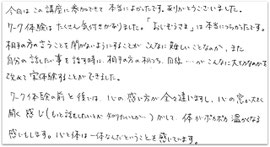 今日はこの講座に参加できて 本当によかったです。ありがとうございました。
ワーク体験はたくさん気付きがありました。「おじぞうさま」は本当につらかったです。
相手の方の言うことを聞かないようにすることが こんなに難しいことなのか、また
自分の話したい事を話す時に、相手の方の相づち、目線…がこんなに大切なのかを
改めて実体験することができました。
ワーク体験の前と後では、心の感い方が全く違いますし、心の窓が大きく
開く感じ(もっと話したいとか 知りたいとか…)がして、体がポカポカ温かくなる
感じもします。心と体は一体なんだということを感じています。